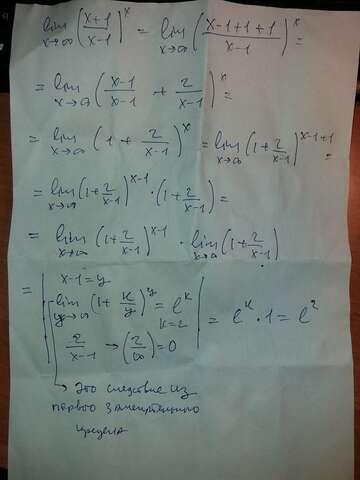 lim x→∞ (x+1/x-1)^x = lim x→∞ (x-1+1+1/x-1)^x =
= lim x→∞ (x-1/x-1 + 2/x-1)^x =
= lim x→∞ (1 + 2/x-1)^x = lim x→∞ (1+2/x-1)^x-1+1 =
= lim x→∞ (1+2/x-1)^x-1 · (1+2/x-1) =
= lim x→∞ (1+2/x-1)^x-1 · lim x→∞ (1+2/x-1)
x-1=y
= lim y→∞ (1+k/y)^y = e^k = e^k · 1 = e^2
k=2
2/x-1 → (2/∞) = 0
Это следствие из
первого замечательного
предела